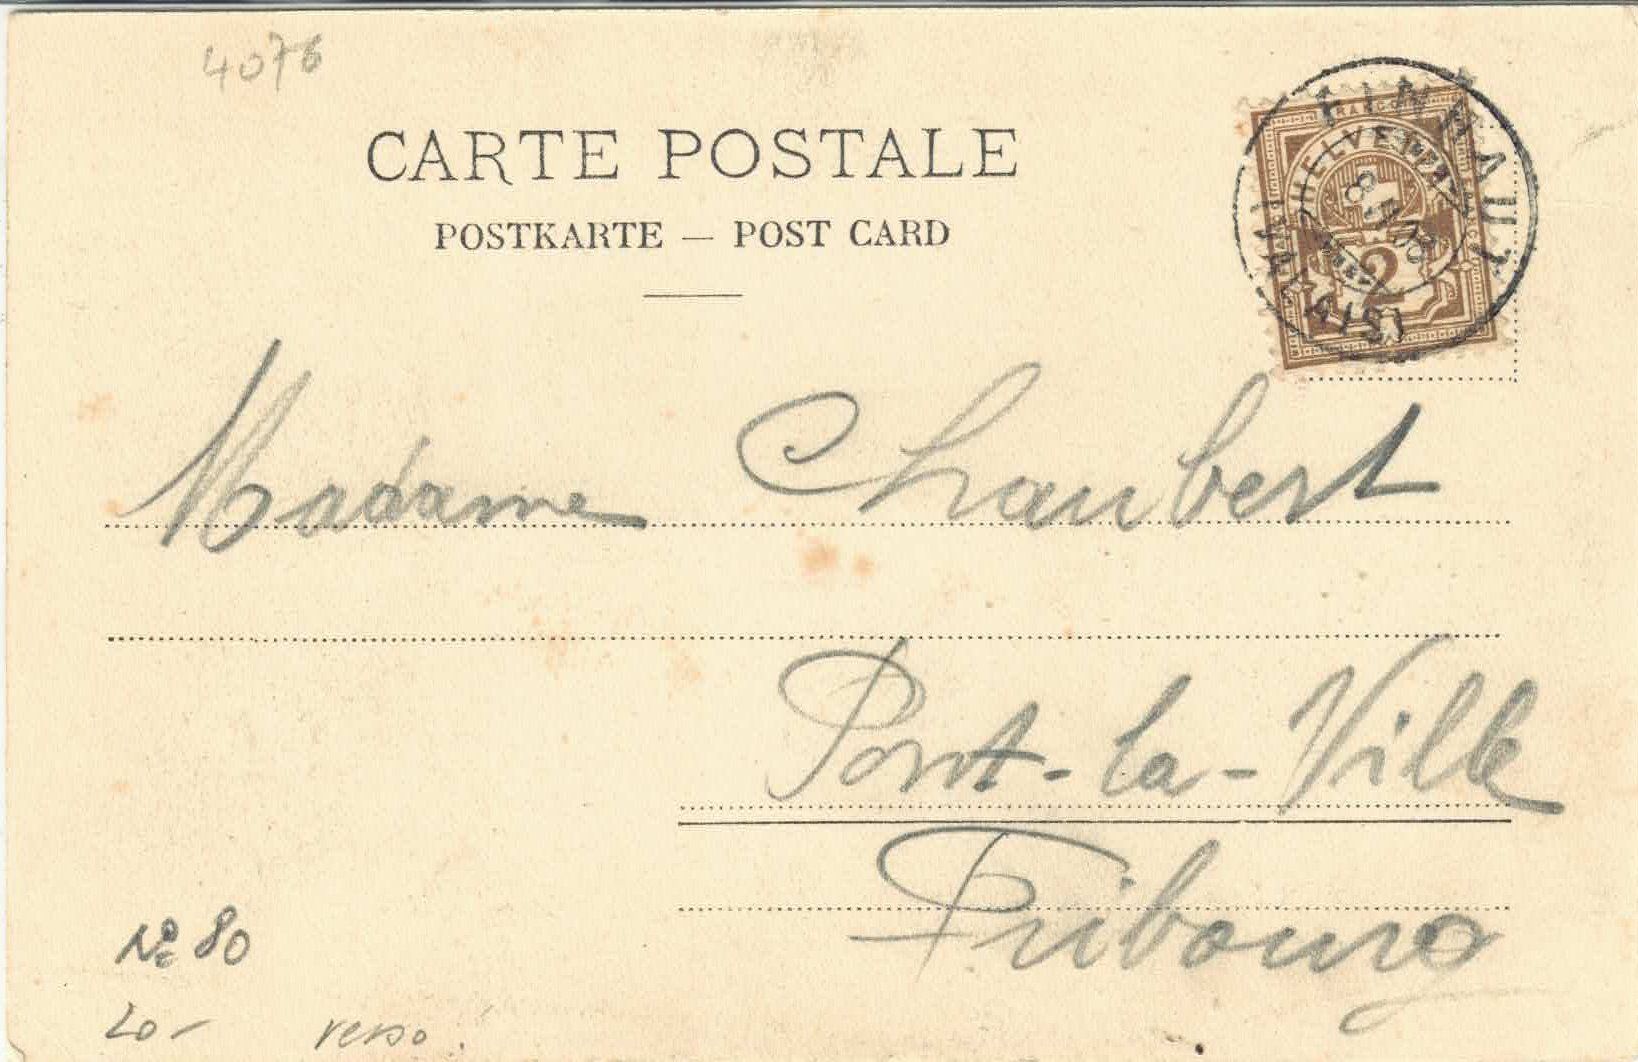 4076
CARTE POSTALE
POSTKARTE — POST CARD
FINHAUT
HELVETIA
FRANCO
2
(VALAIS)
Madame Chaubert
Pont-la-Ville
Fribourg
No 80
20 - verso.